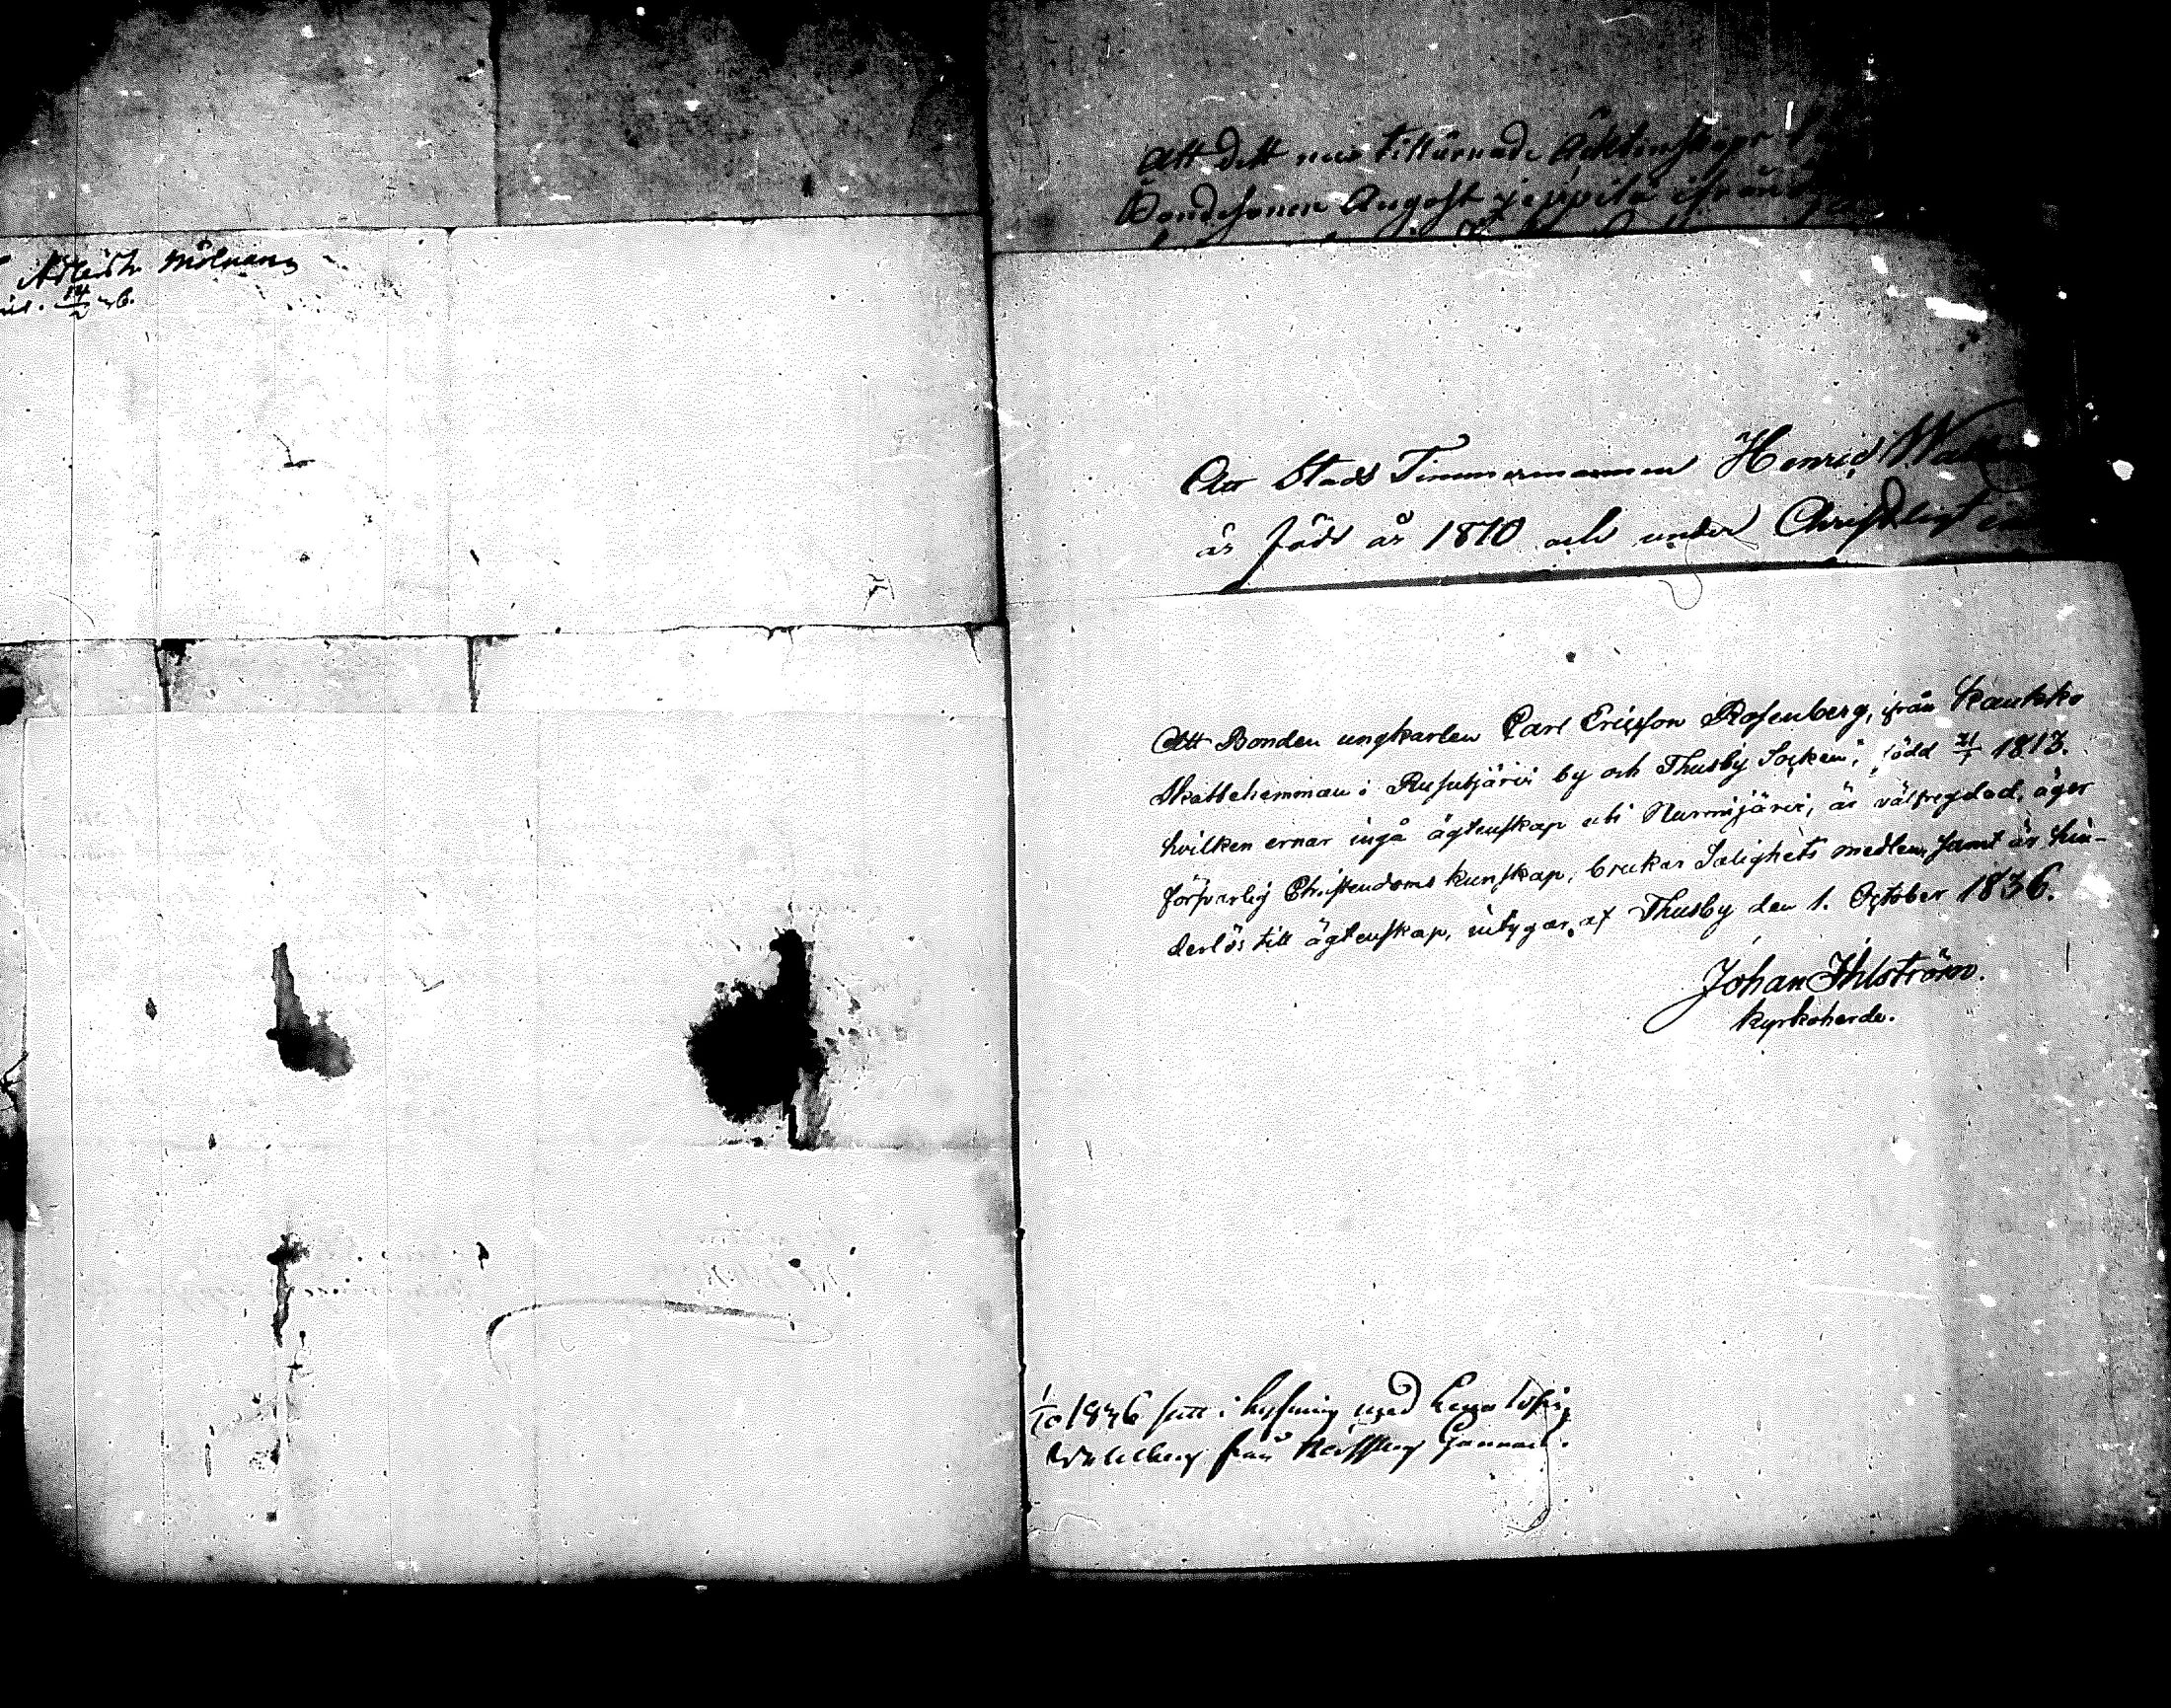 Adlerstr Mölnarg
14/2 36.
Att Dett neo tillärnade Äcktenskapet
Bondesonen August jeppilä ifrån
Att Stads Timmermannen Henric
är född år 1810 och under Christeligt
Att Bonden ungkarlen Carl Ericsson Rosenberg, ifrån Kaukko
Skattehemman i Rusutjärvi by och Thusby Socken, född 21/1 1813.
hvilken ernar ingå ägtenskap uti Nurmijärvi, är välfregdad, äger
försvarlig Christendoms kunskap, brukar Salighets medlen, samt är hin-
derlös till ägtenskap, intygar, af Thusby den 1. October 1836.
Johan Ihlström.
kyrkoherde.
1/10 1836 satt i lysning med Lena
från